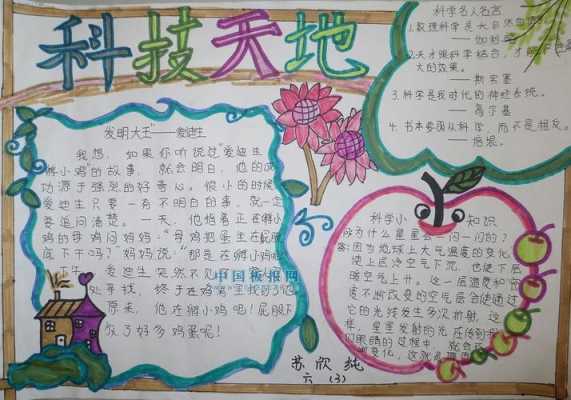 科技天地
科学名人名言
1.数理科学是大自
——伽利略
2.天才跟科学结合，才能
大的效果。
——斯宾塞
3.科学是我时代的神经系统。
——高尔基
4.书本要从科学，而不是相反。
——培根。
发明大王"——爱迪生
我想，如果你听说过"爱迪生
孵小鸡"的故事，就会明白，他的成
功源于强烈的好奇心。很小的时候
爱迪生只要一有不明白的事，就一定
要追问清楚。一天，他指着正在孵小
鸡的母鸡问妈妈："母鸡把蛋坐在屁股
底下干吗？"妈妈说："那是在孵小鸡
爱迪生突然不见
中国板报网
处寻找，终于在鸡窝里找到了他
原来，他在孵小鸡呢！屁股下
放了好多鸡蛋呢！
科学小知识
成为什么星星会一闪一闪的？
答：因为地球上大气温度的变化
使上层冷空气下沉，也使下层
暖空气上升。这一层温度和密
度不断改变的空气层会使通过
它的光线发生多次折射，这
样，星星发射的光在传到
们眼睛的过程中，就会
变化，这就
苏欣纯
六（3）